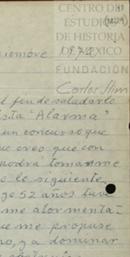 CENTRO DE
ESTUDIOS
DE HISTORIA
DE MÉXICO
FUNDACIÓN
Carlos Slim
iembre 1974
el fin de saludarlo
ista "Alarma"
un concurso que
ue creo que con
podrá tomarme
lo siguiente
go 52 años
me atormenta-
ue me propuse
no, y a dominar